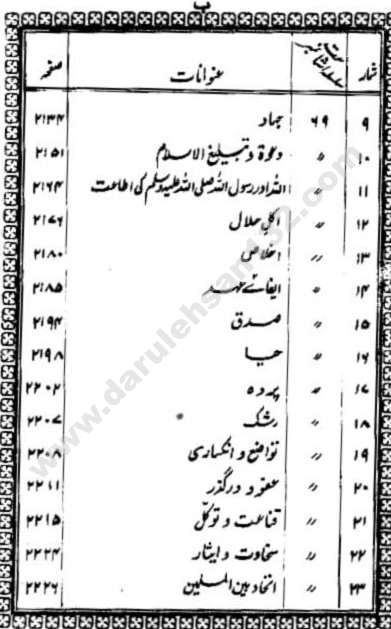 ب
شمار سلسلہ اشاعت نمبر عنوانات صفحہ
۹ ۶۹ جہاد ۲۱۳۴
۱۰ " دعوۃ و تبلیغ الاسلام ۲۱۵۱
۱۱ " اللہ اور رسول اللہ صلی اللہ علیہ وسلم کی اطاعت ۲۱۶۴
۱۲ " اکلِ حلال ۲۱۷۶
۱۳ " اخلاص ۲۱۸۰
۱۴ " ایفائے عہد ۲۱۸۵
۱۵ " صدق ۲۱۹۴
۱۶ " حیا ۲۱۹۸
۱۷ " پردہ ۲۲۰۲
۱۸ " رشک ۲۲۰۷
۱۹ " تواضع و انکساری ۲۲۰۸
۲۰ " عفو و درگذر ۲۲۱۱
۲۱ " قناعت و توکّل ۲۲۱۵
۲۲ " سخاوت و ایثار ۲۲۲۴
۲۳ " اتحاد بین المسلمین ۲۲۲۶
www.darulehsan.com